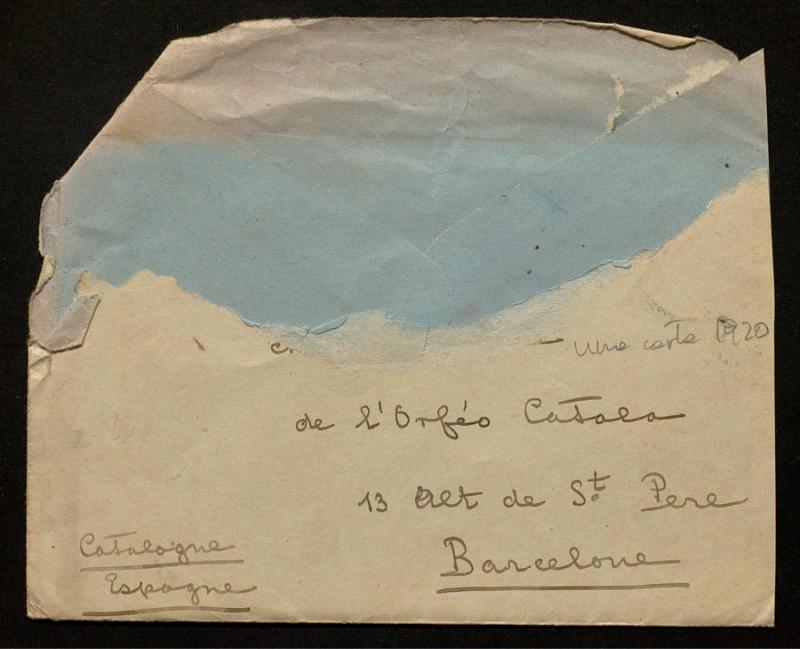 una carta 1920
de l'Orféo Catala
13 Alt de St. Pere
Barcelone
Catalogne
Espagne